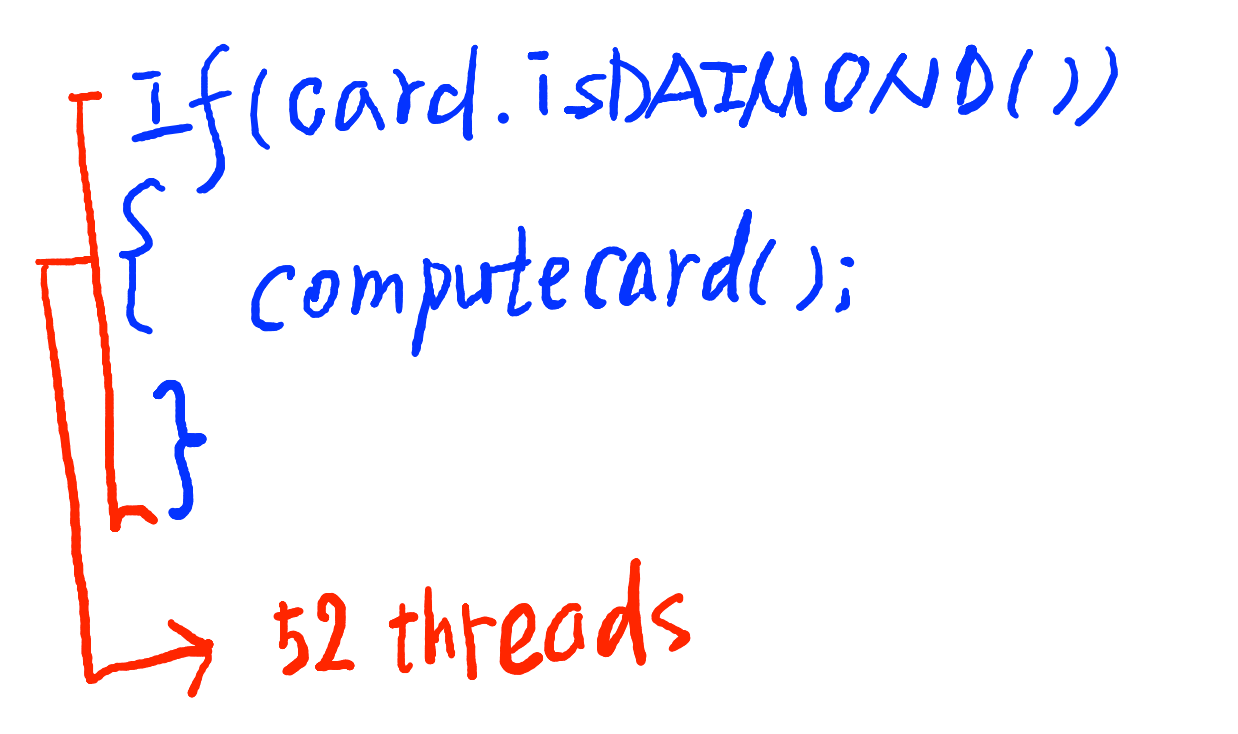 If(card.isDAIMOND())
{
computecard();
}
52 threads